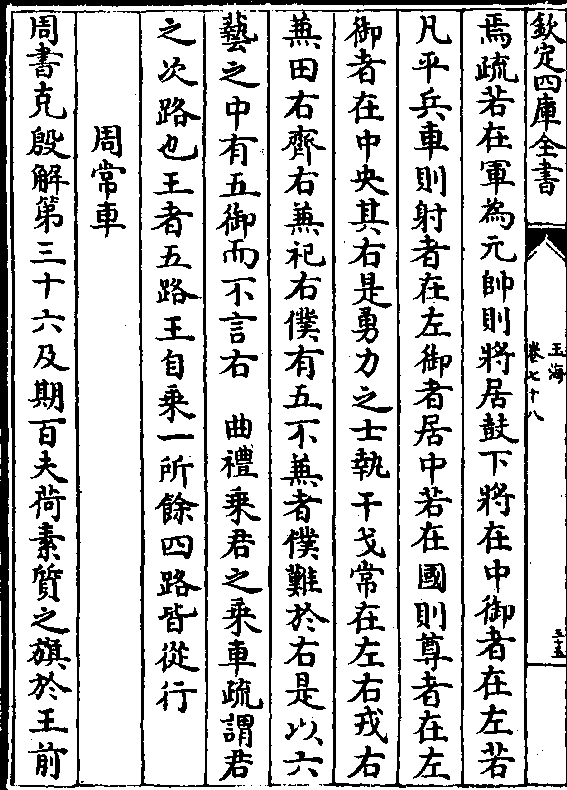 欽定四庫全書
玉海
卷七十八
五
焉疏若在軍為元帥則將居鼓下將在中御者在左若
凡平兵車則射者在左御者居中若在國則尊者在左
御者在中央其右是勇力之士執干戈常在左右戎右
兼田右齊右兼祀右僕有五不兼者僕難於右是以六
藝之中有五御而不言右　曲禮乘君之乘車疏謂君
之次路也王者五路王自乘一所餘四路皆從行
周常車
周書克殷解第三十六及期百夫荷素質之旗於王前